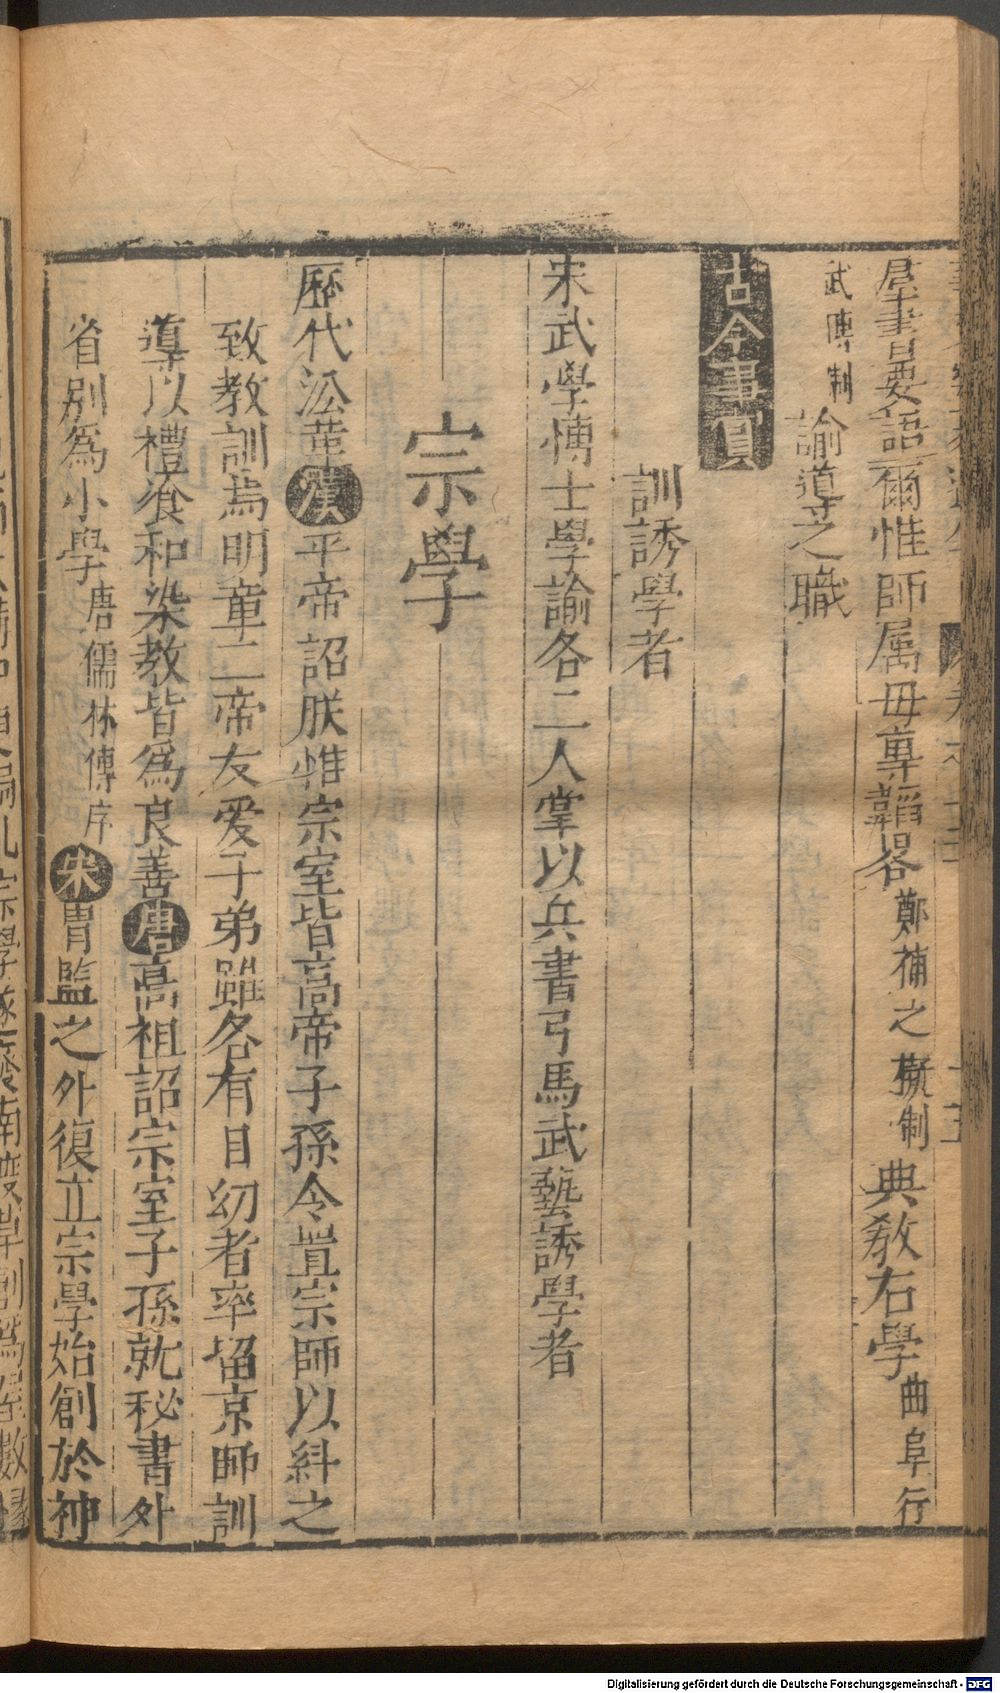 羣書要語爾惟師属毋專韜畧鄭補之擬制典敎右學曲阜行
武博制諭導之職
古今事實
訓誘學者
宋武學博士學諭各二人掌以兵書弓馬武藝誘學者
宗學
歷代沿革漢平帝詔朕惟宗室皆高帝子孫令置宗師以糾之
致教訓焉明章二帝友爱子弟雖各有目幼者率留京師訓
導以禮飡和染教皆爲良善唐高祖詔宗室子孫就秘書外
省别為小學唐儒林傳序宋胄監之外復立宗學始創於神
Digitalisierung gefördert durch die Deutsche Forschungsgemeinschaft - DFG